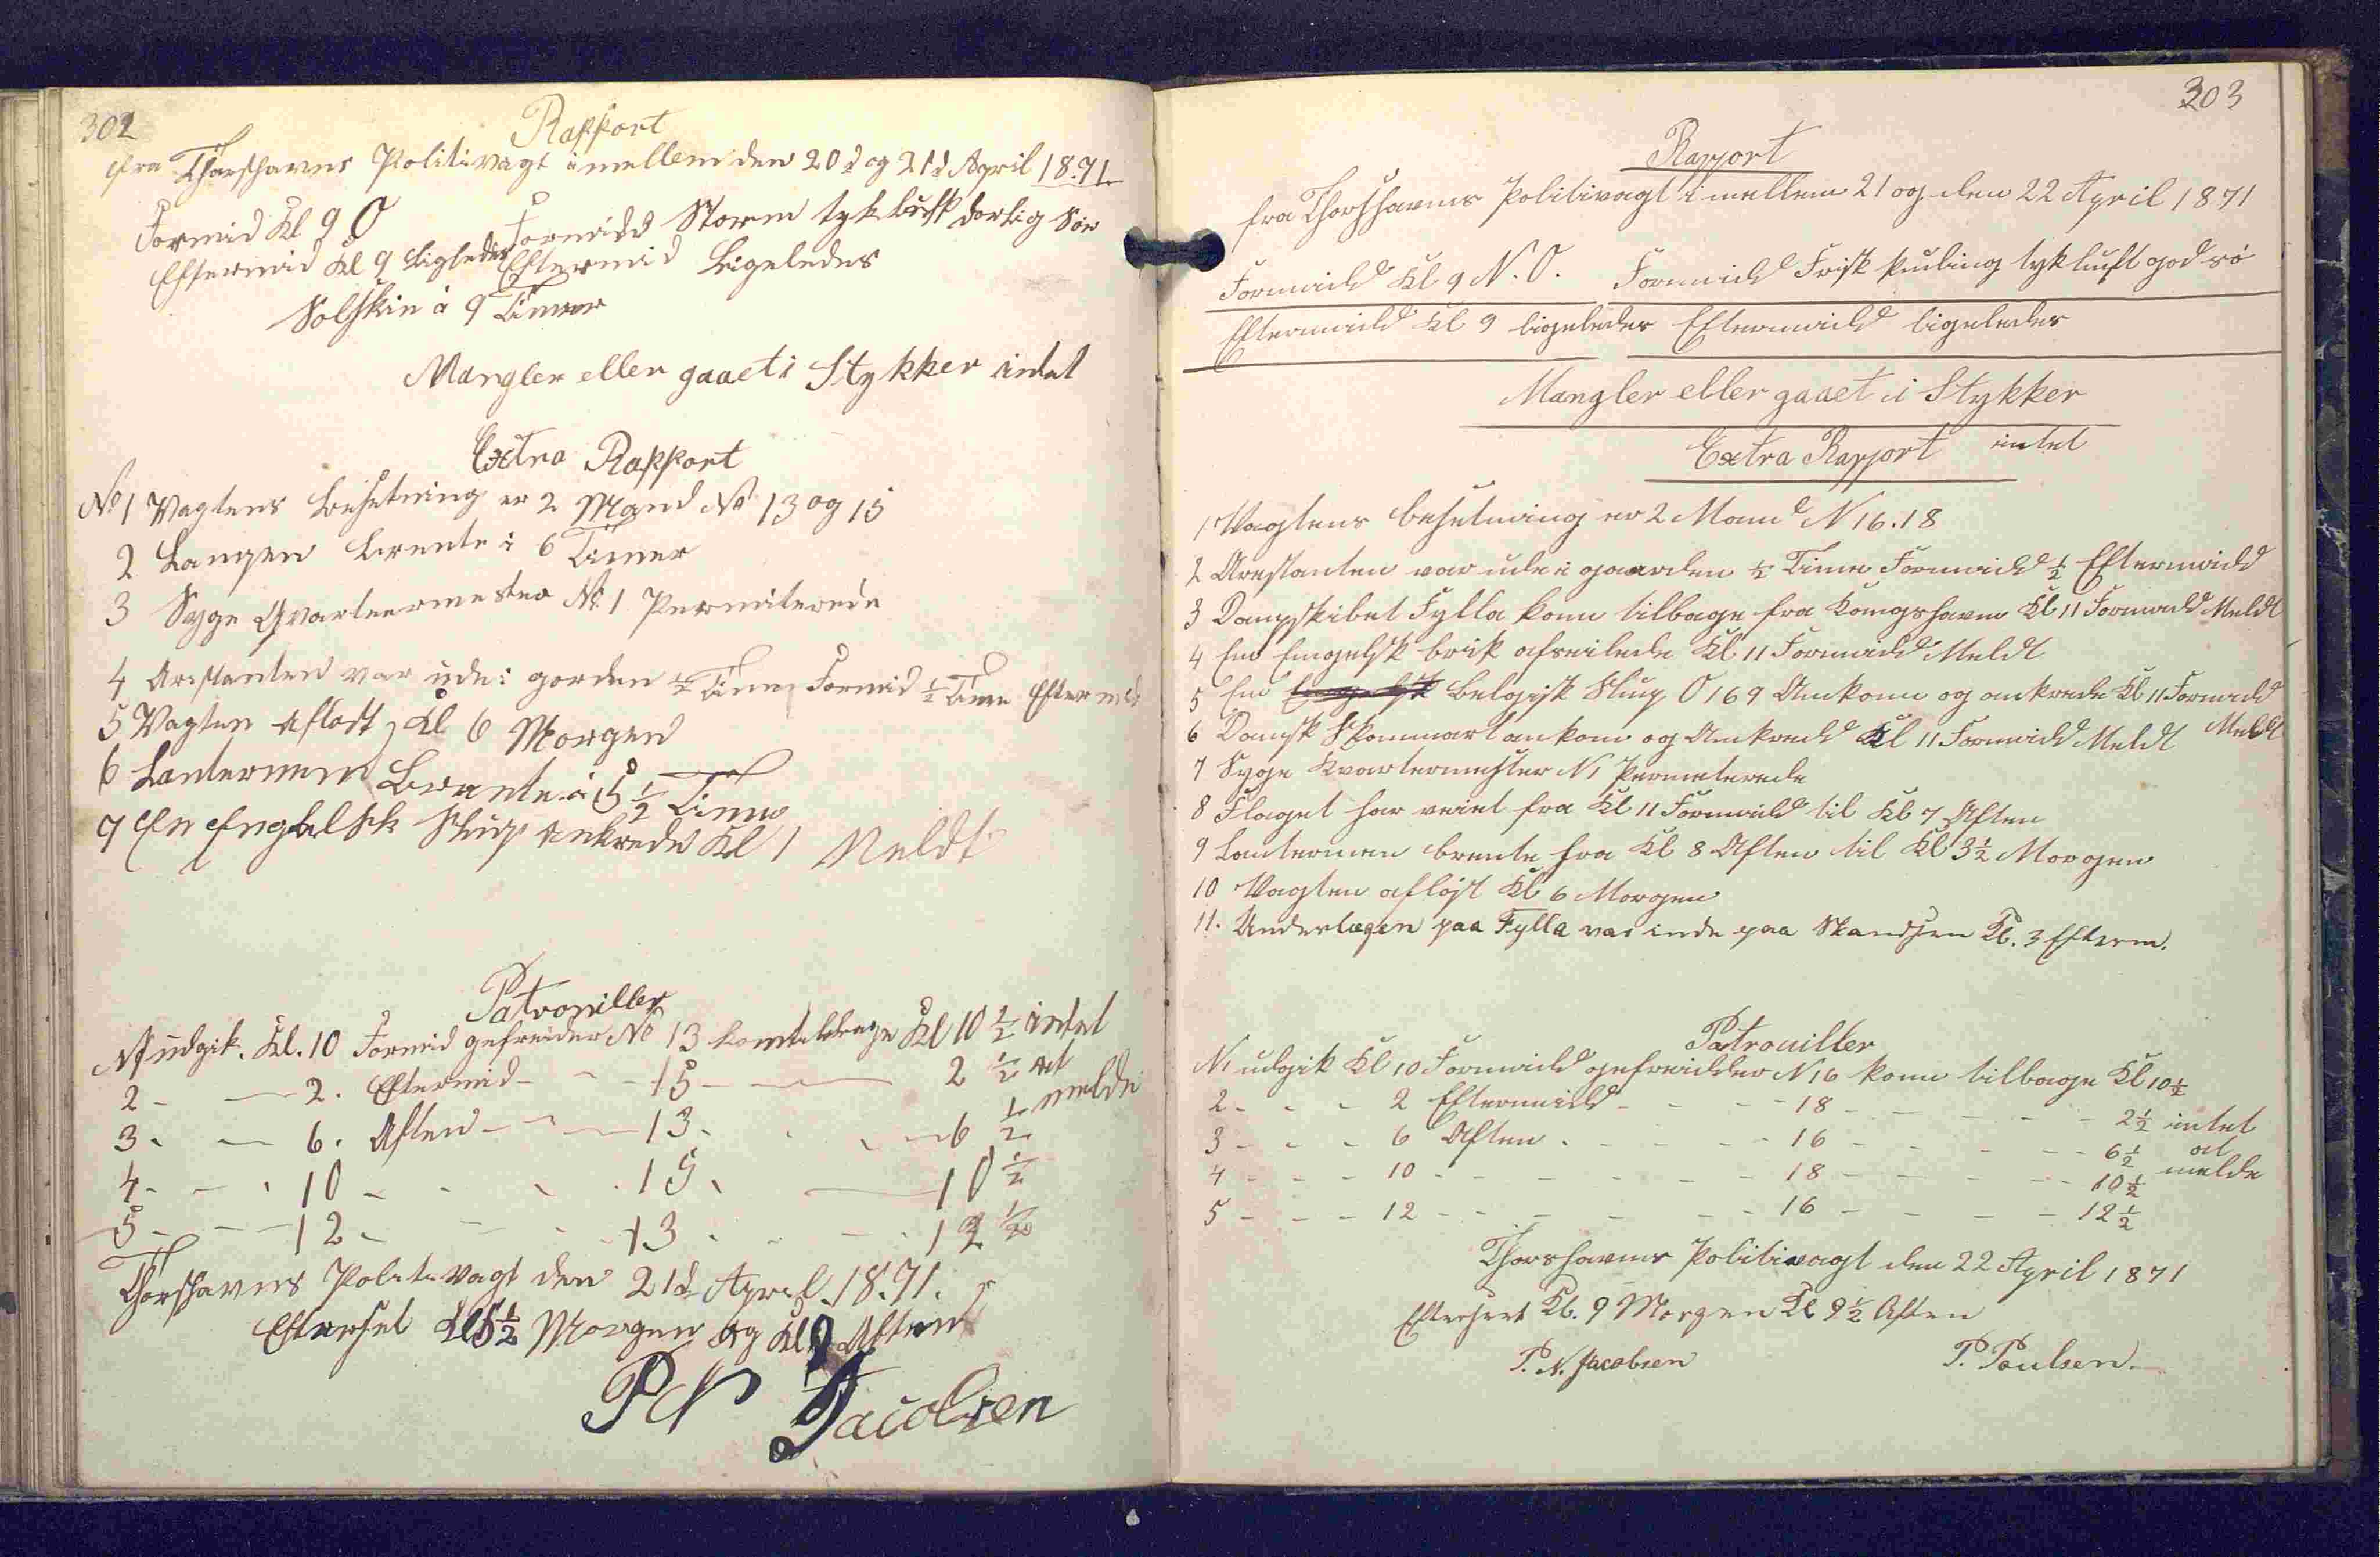 302
Rapport
fra Thorshavns Politivagt imellem den 20d og 21d April 1871.
Formid Kl 9 O Formidd Storm tyk luft dorlig Sön
Eftermid Kl 9 ligeledes Eftermid Ligeledes
Solskin i 9 Timer
Mangler eller gaaet i Stykker intet
Extra Rapport
No 1 Vagtens Besetning er 2 Mand No 13 og 15
2 Lampen Brente i 6 Timer
3 Syge Qvarteermester No 1 Permiterede
4 Arestanten var üde i gorden ½ Time Formid ½ Time Eftermid
5 Vagten Aflost Kl 6 Morgen
6 Lanternen Brente i 5½ Time
7 En Engelsk Slup Ankrede Kl 1 Meldt
Patrouiller
N1 üdgik. Kl. 10 Formid gefreider No 13 kom tilbage Kl 10 ½ intet
2 - - 2. Eftermid - - 15 - - 2 ½ at
3 - - 6. Aften - - 13 - - 6 ½ melde
4 - - 10 - - 15 - - 10 ½
5 - - 12 - - 13 - - 12 ½
Thorshavns Politivagt den 21d April. 1871.
Efterset Kl 5½ Morgen og Kl 9 Aften
P N Jacobsen
303
Rapport
fra Thorshavns Politivagt imellem 21 og den 22 April 1871
Formidd Kl 9 N. O. Formidd Frisk kuling tyk luft god sö
Eftermidd Kl 9 ligeledes Eftermidd ligeledes
Mangler eller gaaet i Stykker
Extra Rapport intet
1 Vagtens besetning er 2 Mand N 16. 18
2 Arestanten var ude i gaarden ½ Time Formidd ½ Eftermidd
3 Dampskibet Fylla kom tilbage fra Kongshavn Kl 11 Formidd Meldt
4 En Engelsk brik afseilede Kl 11 Formidd Meldt
5 En Engelsk belgisk Slup O 169 Ankom og ankrede Kl 11 Formidd
6 Dansk Skonnart ankom og Ankredd Kl 11 Formidd Meldt Meldt
7 Syge Kvartermester N1 Permeterede
8 Flaget har veiet fra Kl 11 Formidd til Kl 7 Aften
9 Lanternen brente fra Kl 8 Aften til Kl 3½ Morgen
10 Vagten aflöst Kl 6 Morgen
11. Underlægen paa Fylla var inde paa Skandsen Kl. 3 Efterm.
Patrouiller
N1 udgik Kl 10 Formidd gefreidder N 16 kom tilbage Kl 10½
2 - - - 2 Eftermidd - - - 18 - - - 2½ intet
3 - - - 6 Aften - - - 16 - - - 6½ at
4 - - - 10 - - - 18 - - - 10½ melde
5 - - - 12 - - - 16 - - - 12½
Thorshavns Politivagt den 22 April 1871
Efterseet Kl. 9 Morgen Kl 9½ Aften
P. N. Jacobsen P. Poulsen.